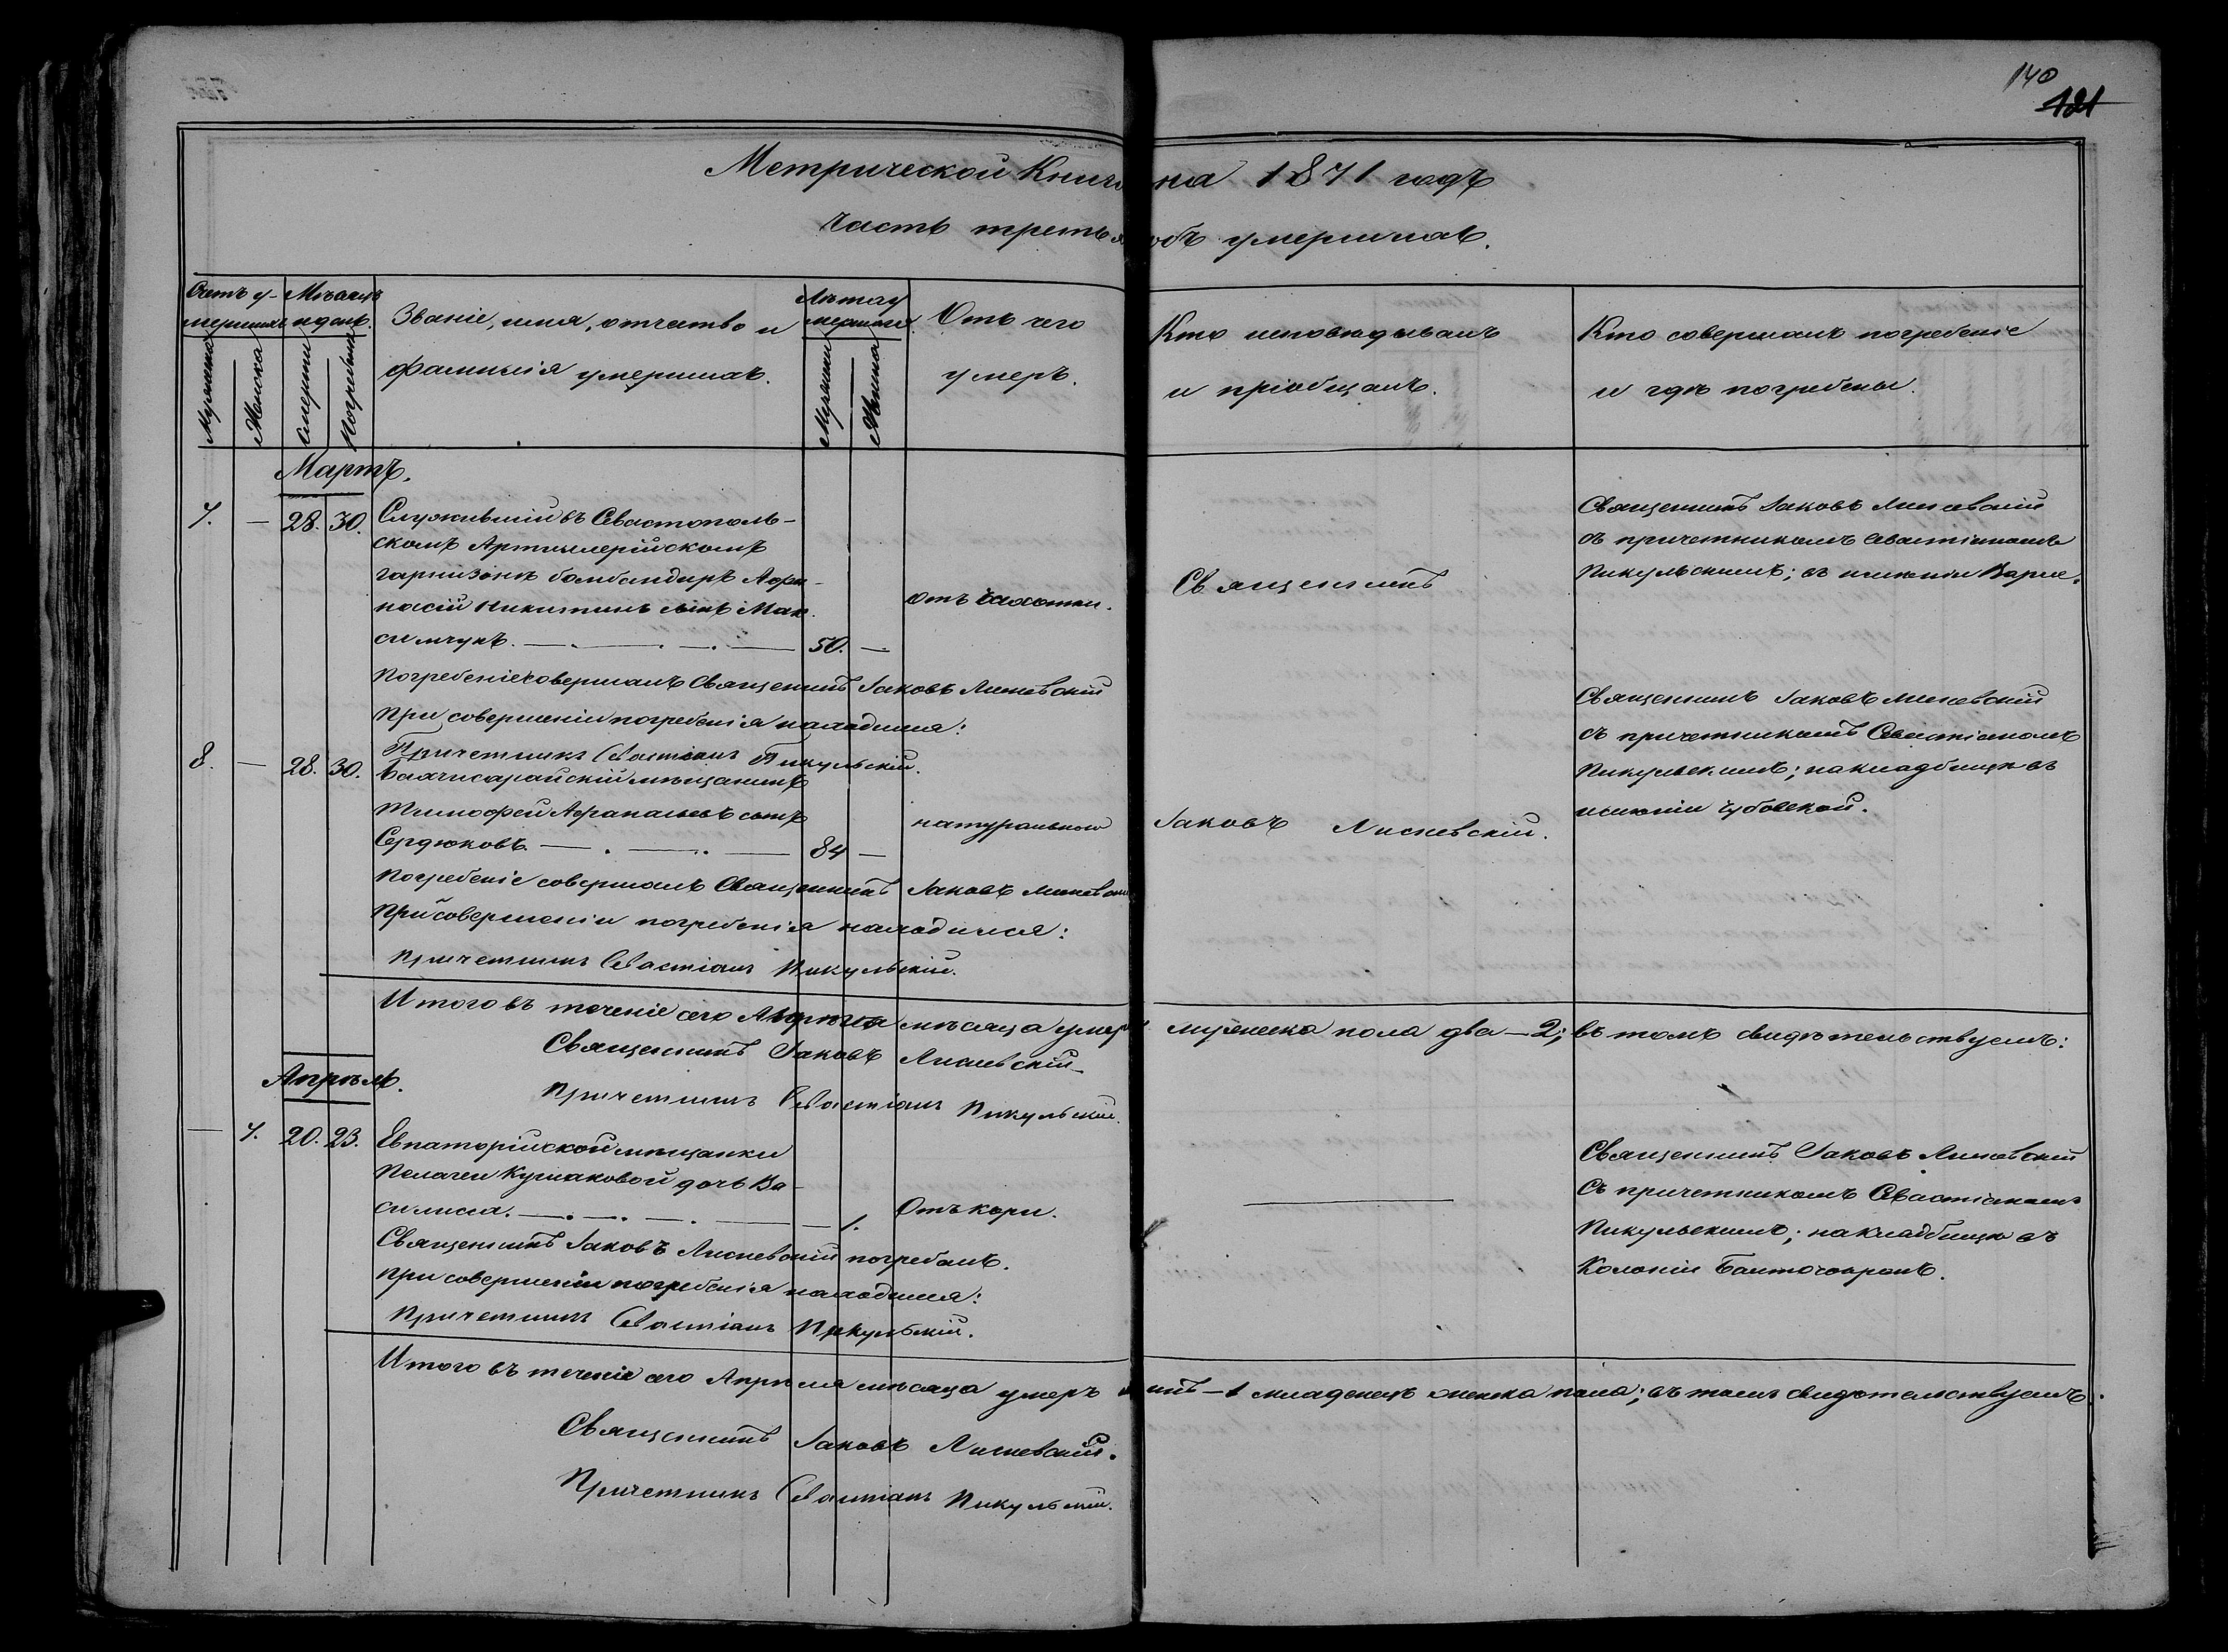 140
121
Метрической Книги на 1871 годъ
Часть третья объ умершихъ.
Счетъ умершихъ
Мужеска
Женска
Мѣсяцъ и день.
Смерти
Погребенія
Званіе, имя, отчество и
фамилія умершихъ.
Лѣта умершаго
Мужеска
Женска
Отъ чего
умеръ.
Кто исповѣдывалъ
и пріобщалъ.
Кто совершалъ погребеніе
и гдѣ погребены.
Мартъ.
7. — 28. 30. Служившій въ Севастополь-
скомъ Артиллерійскомъ
гарнизонѣ бомбандиръ Афа-
насій Никитинъ сынъ Мак-
симчукъ. — 50. —
отъ чахотки.
Священникъ
Священникъ Іаковъ Лисневскій
съ причетникомъ Севастіаномъ
Пикульскимъ; въ имѣніи
Погребеніе совершалъ Священникъ Іаковъ Лисневскій
При совершеніи погребенія находился:
Причетникъ Севастіанъ Пикульскій.
8. — 28. 30. Бахчисарайскій мѣщанинъ
Тимофей Афанасьевъ сынъ
Сердюковъ. — 84 —
натурально
Іаковъ Лисневскій.
Священникъ Іаковъ Лисневскій
съ причетникомъ Севастіаномъ
Пикульскимъ; на кладбищѣ въ
имѣніи
Погребеніе совершалъ Священникъ Іаковъ Лисневскій
При совершеніи погребенія находился:
Причетникъ Севастіанъ Пикульскій.
Итого въ теченіе сего мѣсяца умерло мужеска пола два — 2; въ томъ свидѣтельствуемъ:
Священникъ Іаковъ Лисневскій
Причетникъ Севастіанъ Пикульскій.
Апрѣль.
— 7. 20. 23. Евпаторійской мѣщанки
Пелагеи Кушаковой дочь Ва-
силиса. — — 1.
Отъ кори.
Священникъ Іаковъ Лисневскій
съ причетникомъ Севастіаномъ
Пикульскимъ; на кладбищѣ въ
Колоніи
Священникъ Іаковъ Лисневскій погребалъ.
При совершеніи погребенія находился:
Причетникъ Севастіанъ Пикульскій.
Итого въ теченіе сего Апрѣля мѣсяца умеръ одинъ — 1 младенецъ женска пола; въ томъ свидѣтельствуемъ:
Священникъ Іаковъ Лисневскій.
Причетникъ Севастіанъ Пикульскій.